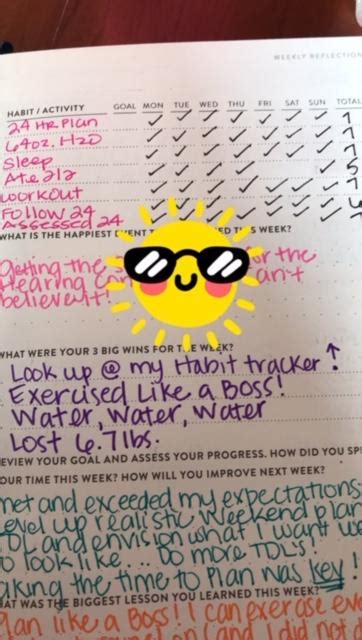 WEEKLY REFLECTION
HABIT / ACTIVITY GOAL MON TUE WED THU FRI SAT SUN TOTAL
24 HR Plan 7
64oz. H2O 7
Sleep 7
Ate 212 5
Workout
Follow 24
Assessed 24
WHAT IS THE HAPPIEST WEEK?
Getting the for the
Hearing can't
believe it!
WHAT WERE YOUR 3 BIG WINS FOR THE WEEK?
Look up @ my Habit tracker ↑
Exercised Like a Boss!
Water, Water, Water
Lost 6.7lbs.
REVIEW YOUR GOAL AND ASSESS YOUR PROGRESS. HOW DID YOU
OUR TIME THIS WEEK? HOW WILL YOU IMPROVE NEXT WEEK?
met and exceeded my expectations
Level up realistic weekend plan
and envision what I want
to look like... Do more TDL's!
aking the time to Plan was key!
AT WAS THE BIGGEST LESSON YOU LEARNED THIS WEEK?
Plan like a Boss! I can exercise
and I did not